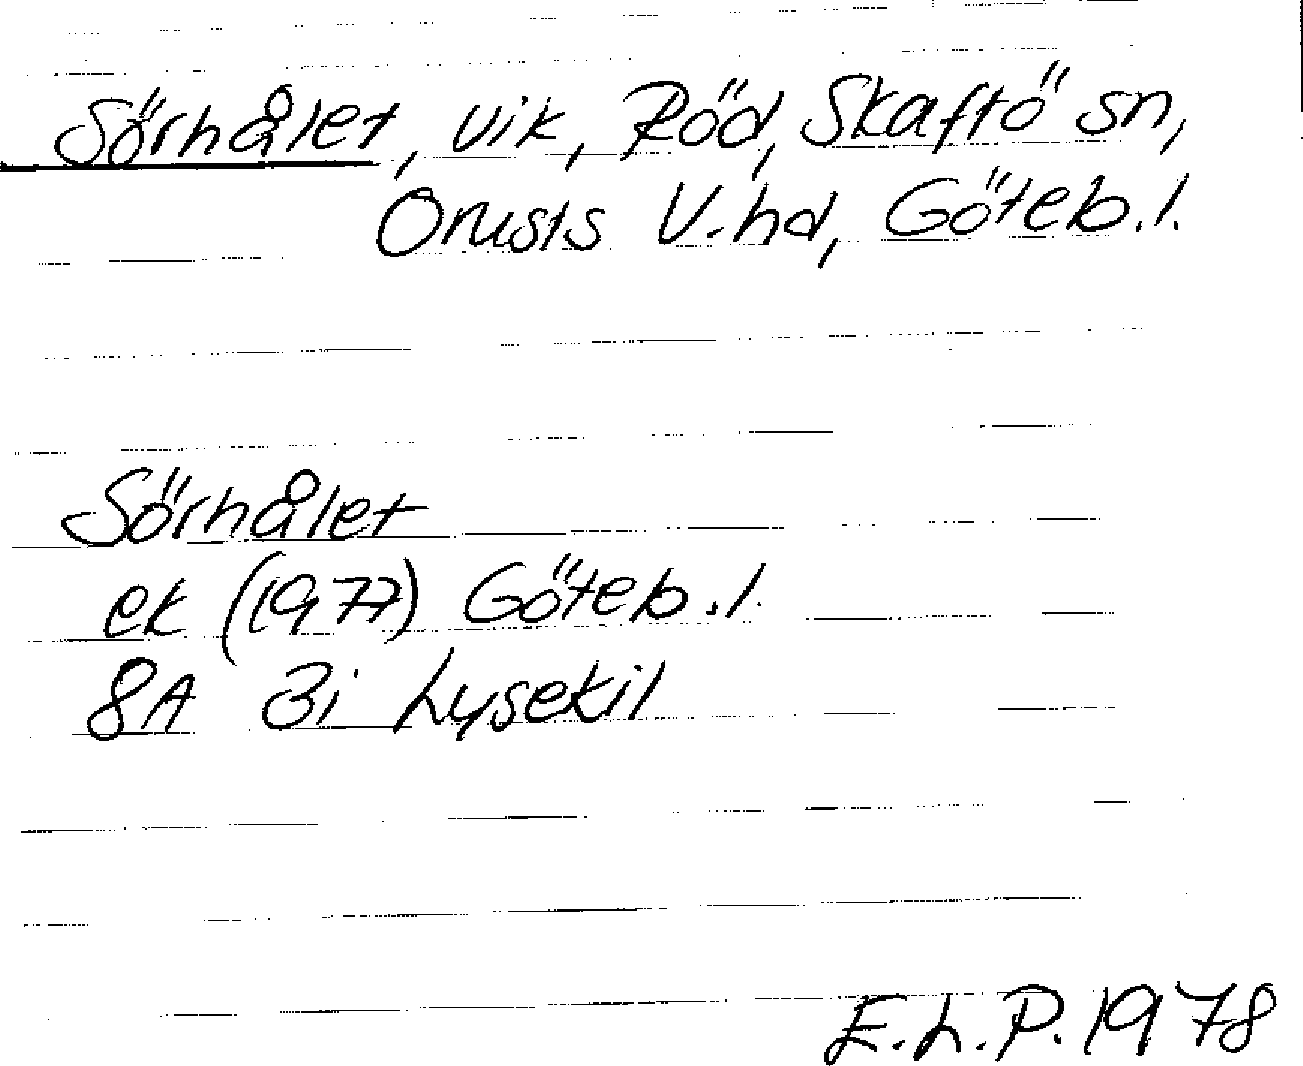 Sörhålet, vik, Röd, Skaftö sn,
Orusts V. hd, Göteb. l.
Sörhålet
ek (1977) Göteb. l.
8A 3i Lysekil
E. L. P. 1978